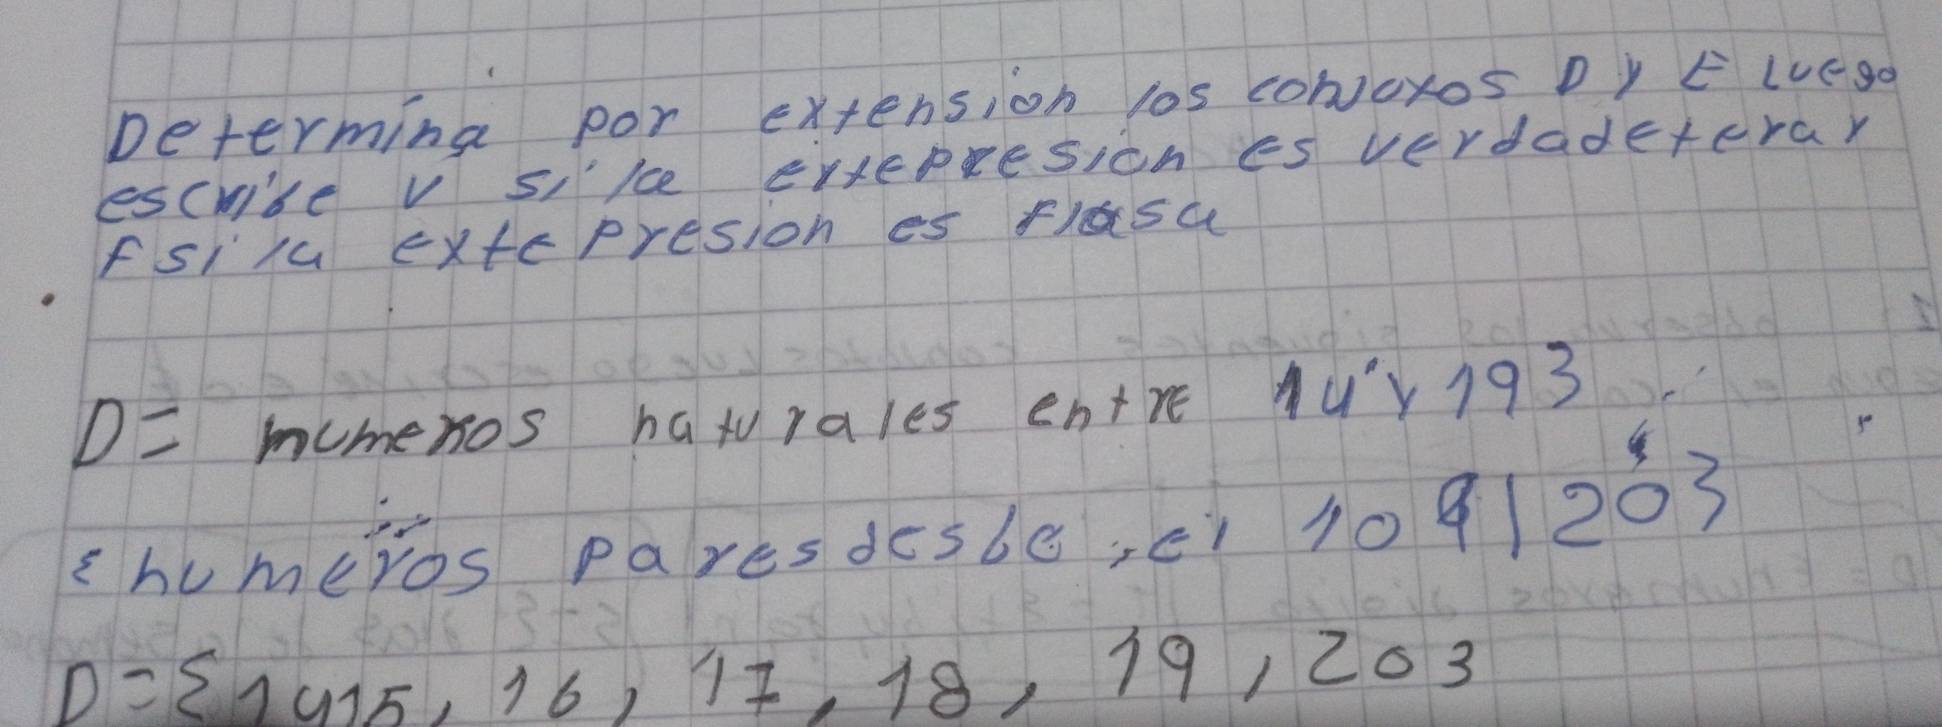 Determina por extension los conjuxos D y E luego
escribe v si la extepresion es verdadeterar
F si la extepresion es flasa
D= numeros naturales entre 14 y 19}
{numeros pares desbe el 10 al 20}
D={1415, 16, 17, 18, 19, 20}